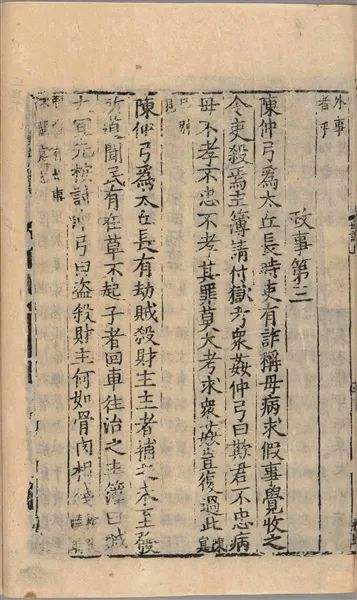 外事
者乎
政事第三
陳仲弓爲太丘長時吏有詐稱母病求假事覺收之
令吏殺焉主簿請付獄考衆姦仲弓曰欺君不忠病
母不孝不忠不孝其罪莫大考求衆姦豈復過此陳寔
已別
見
陳仲弓爲太丘長有劫賊殺財主主者捕之未至發
所道聞民有在草不起子者回車往治之主簿曰賊
大宜先按討仲弓曰盜殺財主何如骨肉相殘